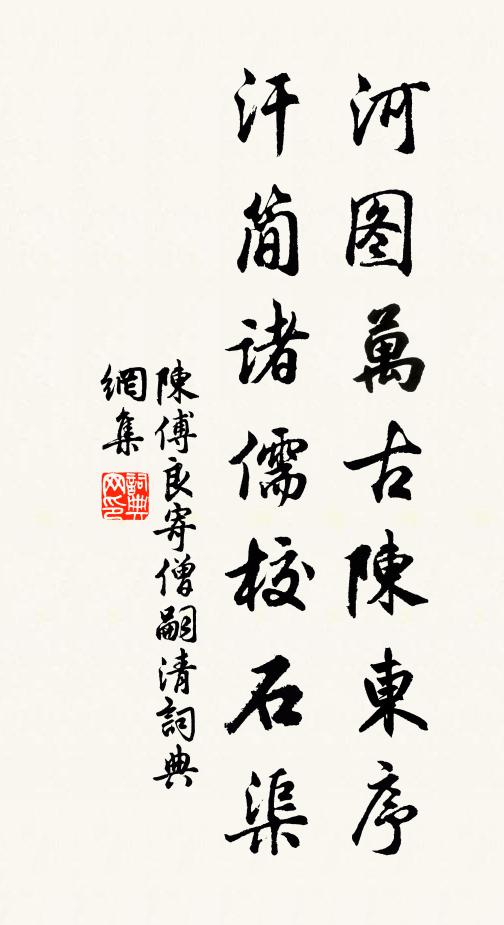 河图萬古陳東序
汗简诸儒校石渠
陳傅良寄僧嗣清詞典
網集
詞典网印